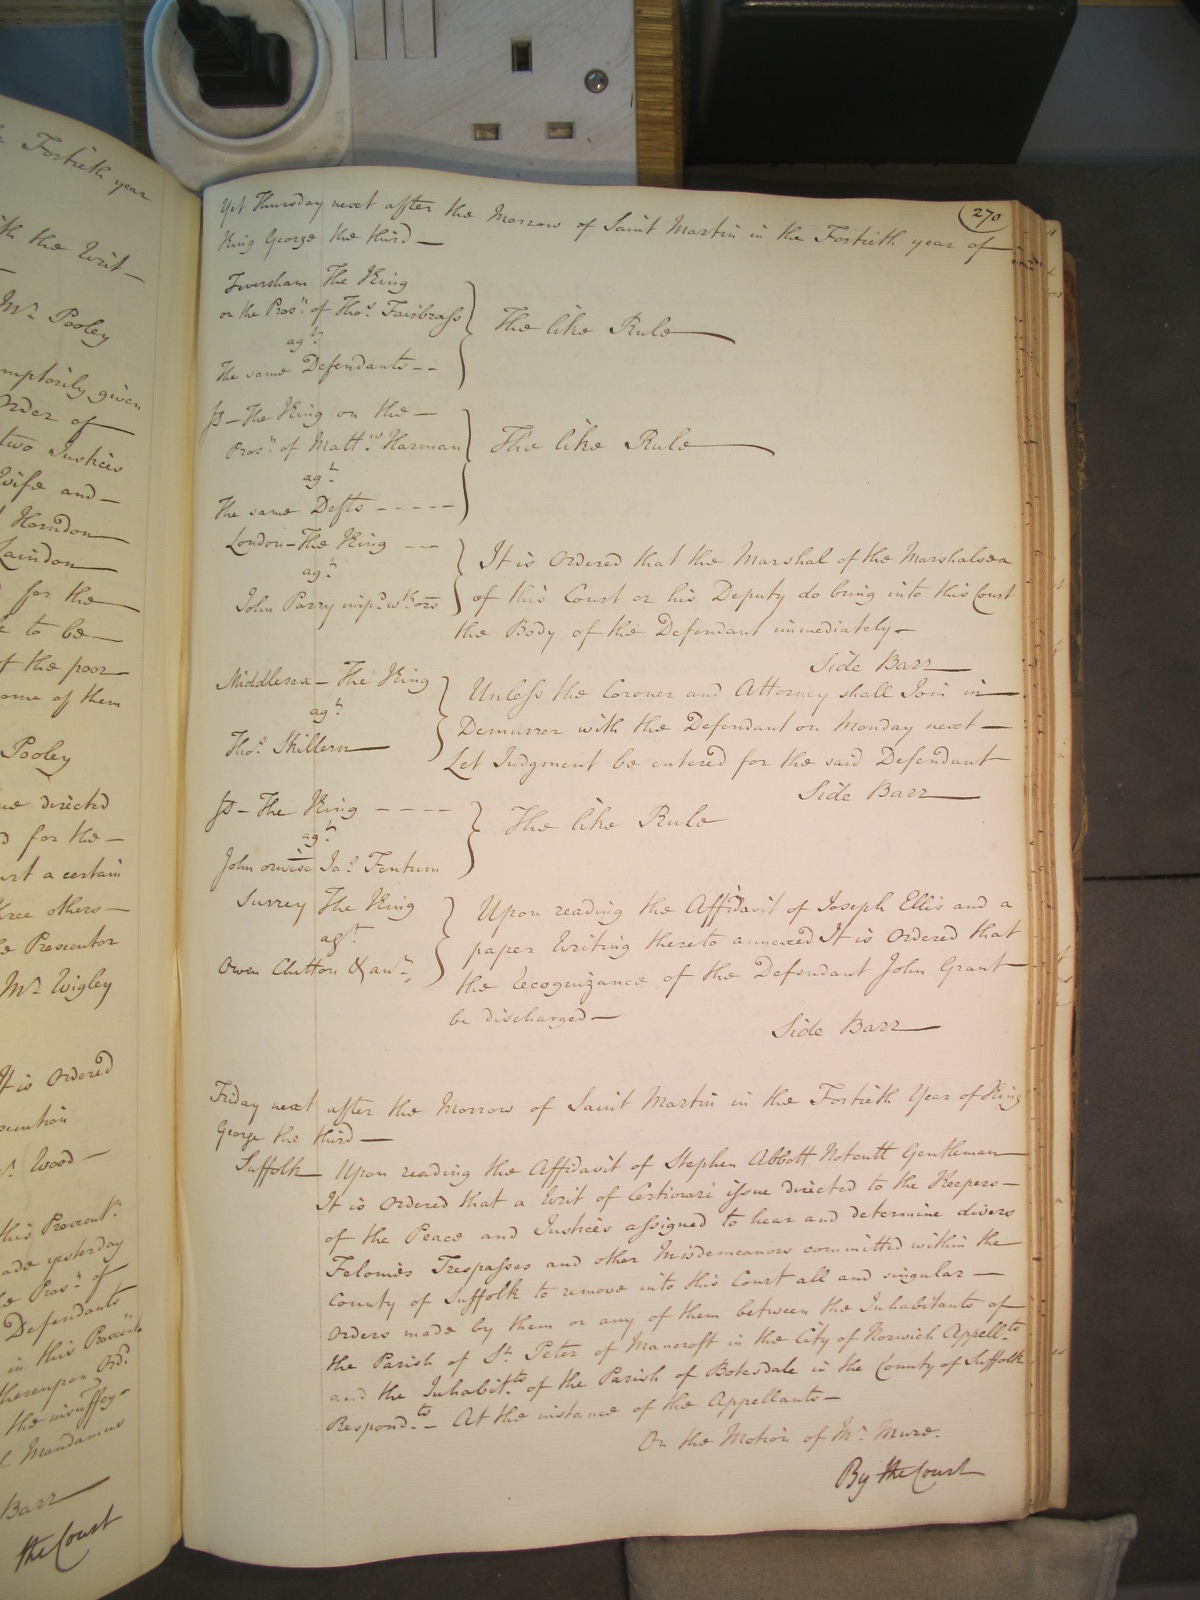 e Fortieth year
ith the Writ
Mr. Pooley
mptorily given
Order of
two Justices
Wife and
Horndon
Laindon
for the
e to be
of the poor
ome of them
Pooley
ue directed
for the
urt a certain
hree others
e Prosecutor
Mr. Wigley
It is Ordered
ecution
Wood
this Prosecutn.
ade yesterday
e Prosn. of
Defendants
in this Prosecutn.
thereupon Ord.
the insuffcy.
Mandamus
Barr
the Court
270
Yet Thursday next after the Morrow of Saint Martin in the Fortieth year of
King George the third
Feversham The King
on the Prosn. of Thos. Fairbrass
agt.
The same Defendants
The like Rule
Js - The King on the
Prosn. of Mattw. Harman
agt.
The same Defts
The like Rule
London - The King
agt.
John Parry imp.d wth. ors
It is Ordered that the Marshal of the Marshalsea
of this Court or his Deputy do bring into this Court
the Body of the Defendant immediately
Side Barr
Middlesex - The King
agt.
Thos. Skillern
Unless the Coroner and Attorney shall Join in
Demurrer with the Defendant on Monday next
Let Judgment be entered for the said Defendant
Side Barr
Js - The King
agt.
John orwise Jas. Fentum
The like Rule
Surrey The King
agt.
Owen Clutton & anr.
Upon reading the Affidavit of Joseph Ellis and a
paper Writing thereto annexed It is Ordered that
the Recognizance of the Defendant John Grant
be discharged
Side Barr
Friday next after the Morrow of Saint Martin in the Fortieth Year of King
George the third
Suffolk Upon reading the Affidavit of Stephen Abbott Notcutt Gentleman
It is Ordered that a Writ of Certiorari issue directed to the Keepers
of the Peace and Justices assigned to hear and determine divers
Felonies Trespasses and other Misdemeanors committed within the
County of Suffolk to remove into this Court all and singular
Orders made by them or any of them between the Inhabitants of
the Parish of St. Peter of Mancroft in the City of Norwich Appellts.
and the Inhabitts. of the Parish of Botesdale in the County of Suffolk
Respondts. At the instance of the Appellants
On the Motion of Mr. Mure.
By the Court